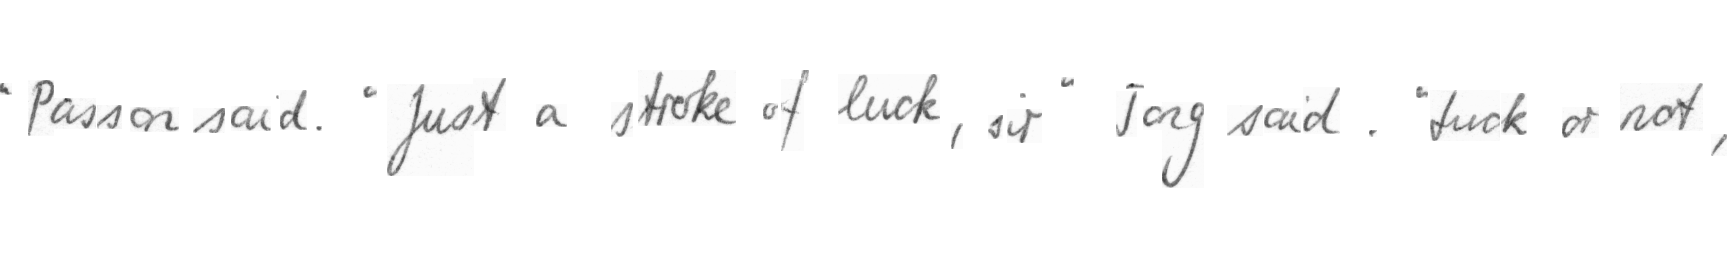 " Passon said. " Just a stroke of luck, sir " Jorg said. " Luck or not,